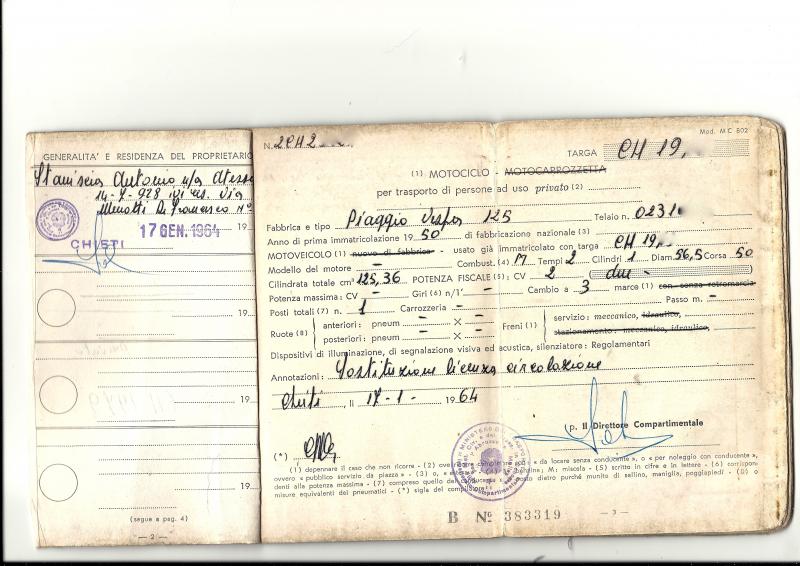 GENERALITA' E RESIDENZA DEL PROPRIETARIO
Staniscia Antonio n/a Atessa
14-7-928 via
Menotti De Francesco Nº
17 GEN. 1964 19
CHIETI
19
19
19
(segue a pag. 4)
— 2 —
Mod. M C 802
N. 2CH2
TARGA CH 19,
(1) MOTOCICLO - MOTOCARROZZETTA
per trasporto di persone ad uso privato (2)
Fabbrica e tipo Piaggio Vespa 125 Telaio n. 0231
Anno di prima immatricolazione 19 50 di fabbricazione nazionale (3)
MOTOVEICOLO (1) nuovo di fabbrica - usato già immatricolato con targa CH 19,
Modello del motore — Combust. (4) M Tempi 2 Cilindri 1 Diam 56,5 Corsa 50
Cilindrata totale cm³ 125,36 POTENZA FISCALE (5): CV 2 ( due - )
Potenza massima: CV — Giri (6) n/1' — Cambio a 3 marce (1) con senza retromarcia
Posti totali (7) n. 1 Carrozzeria — Passo m. —
Ruote (8) anteriori: pneum — × — Freni (1) servizio: meccanico, idraulico,
posteriori: pneum — × — stazionamento: meccanico, idraulico,
Dispositivi di illuminazione, di segnalazione visiva ed acustica, silenziatore: Regolamentari
Annotazioni: Sostituzione licenza circolazione
Chieti, lì 17-1- 1964
p. Il Direttore Compartimentale
(*)
(1) depennare il caso che non ricorre. - (2) ovvero « da locare senza conducente », o « per noleggio con conducente »,
ovvero « pubblico servizio da piazza » - (3) o, « benzina; M: miscela - (5) scritto in cifre e in lettere - (6) corrispon-
denti alla potenza massima - (7) compreso quello del conducente posto dietro purché munita di sellino, maniglia, poggiapiedi - (8) o
misure equivalenti dei pneumatici - (*) sigla del compilatore
B Nº 383319
— 3 —